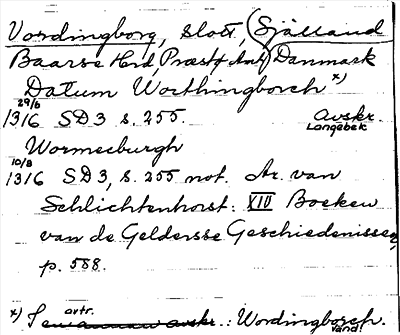 Vordingborg, slott, (Själland
Baarse Hrd, Præstø Amt) Danmark
Datum Worthingborch *)
29/6
1316 SD3 s. 255. Avskr.
Langebek
Wormecburgh
10/8
1316 SD3, s. 255 not. Ar. van
Schlichtenhorst: XIV Boeken
van de Geldersse Geschiedenissen,
p. 588.
avtr.
*) avskr.: Wordingborch.
vand!